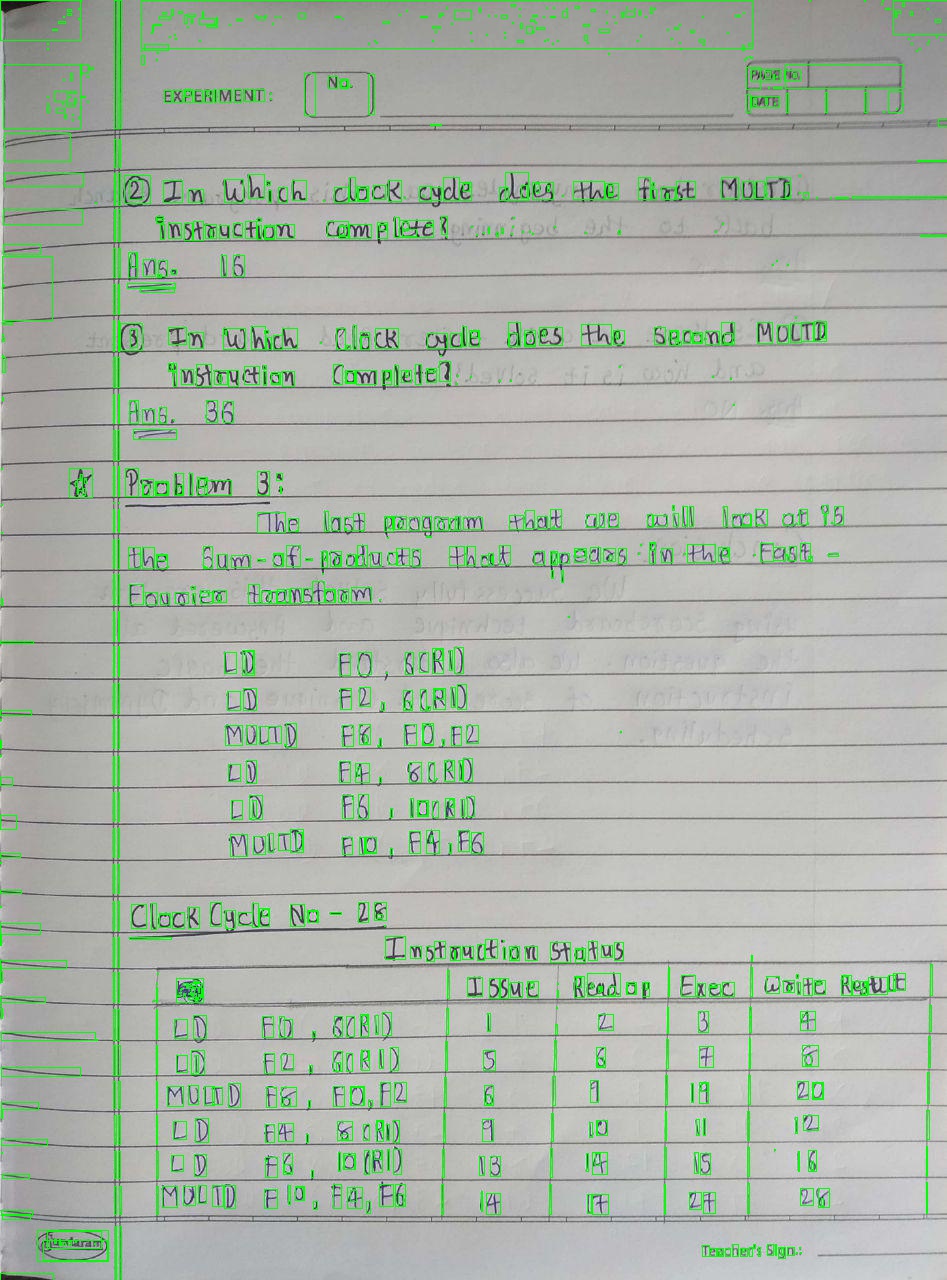 EXPERIMENT: No.
PAGE NO.
DATE
② In Which clock cycle does the first MULTD
instruction complete?
Ans. 16
③ In Which Clock cycle does the second MULTD
instruction Complete?
Ans. 36
☆ Problem 3:
The last program that we will look at is
the Sum-of-products that appears in the Fast-
Fourier transform.
LD F0, 6(R1)
LD F2, 6(R1)
MULTD F8, F0, F2
LD F4, 8(R1)
LD F6, 10(R1)
MULTD F10, F4, F6
Clock Cycle No - 28
Instruction Status
Issue Read op Exec Write Result
LD F0, 6(R1) 1 2 3 4
LD F2, 6(R1) 5 6 7 8
MULTD F8, F0, F2 6 9 19 20
LD F4, 8(R1) 9 10 11 12
LD F6, 10(R1) 13 14 15 16
MULTD F10, F4, F6 14 17 27 28
Sundaram
Teacher's Sign.: